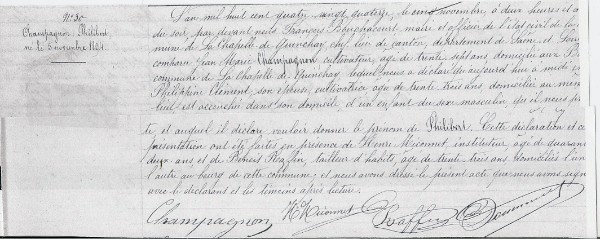 N° 30
Champagnon Philibert
né le 5 novembre 1894
L'an mil huit cent quatre vingt quatorze, le cinq novembre, à deux heures et
du soir, par devant nous François Bouchacourt, maire et officier de l'état civil de la
mune de La Chapelle de Guinchay chef lieu de canton, département de Saône et Loire
comparu Jean Marie Champagnon cultivateur, âgé de trente sept ans, domicilié aux
commune de La Chapelle de Guinchay, lequel nous a déclaré qu'aujourd'hui à midi
Philippine Clément, son épouse, cultivatrice âgée de trente trois ans, domiciliée au mêm
lieu est accouchée dans son domicile, d'un enfant du sexe masculin qu'il nous
te, et auquel il déclare vouloir donner le prénom de Philibert. Cette déclaration et
présentation ont été faites en présence de Henri Miconnet, instituteur, âgé de quarante
deux ans et de Benoit Raffin, tailleur d'habits, âgé de trente trois ans domiciliés l'un
l'autre au bourg de cette commune; et nous avons dressé le présent acte que nous avons signé
avec le déclarant et les témoins après lecture.
Champagnon H Miconnet Raffin